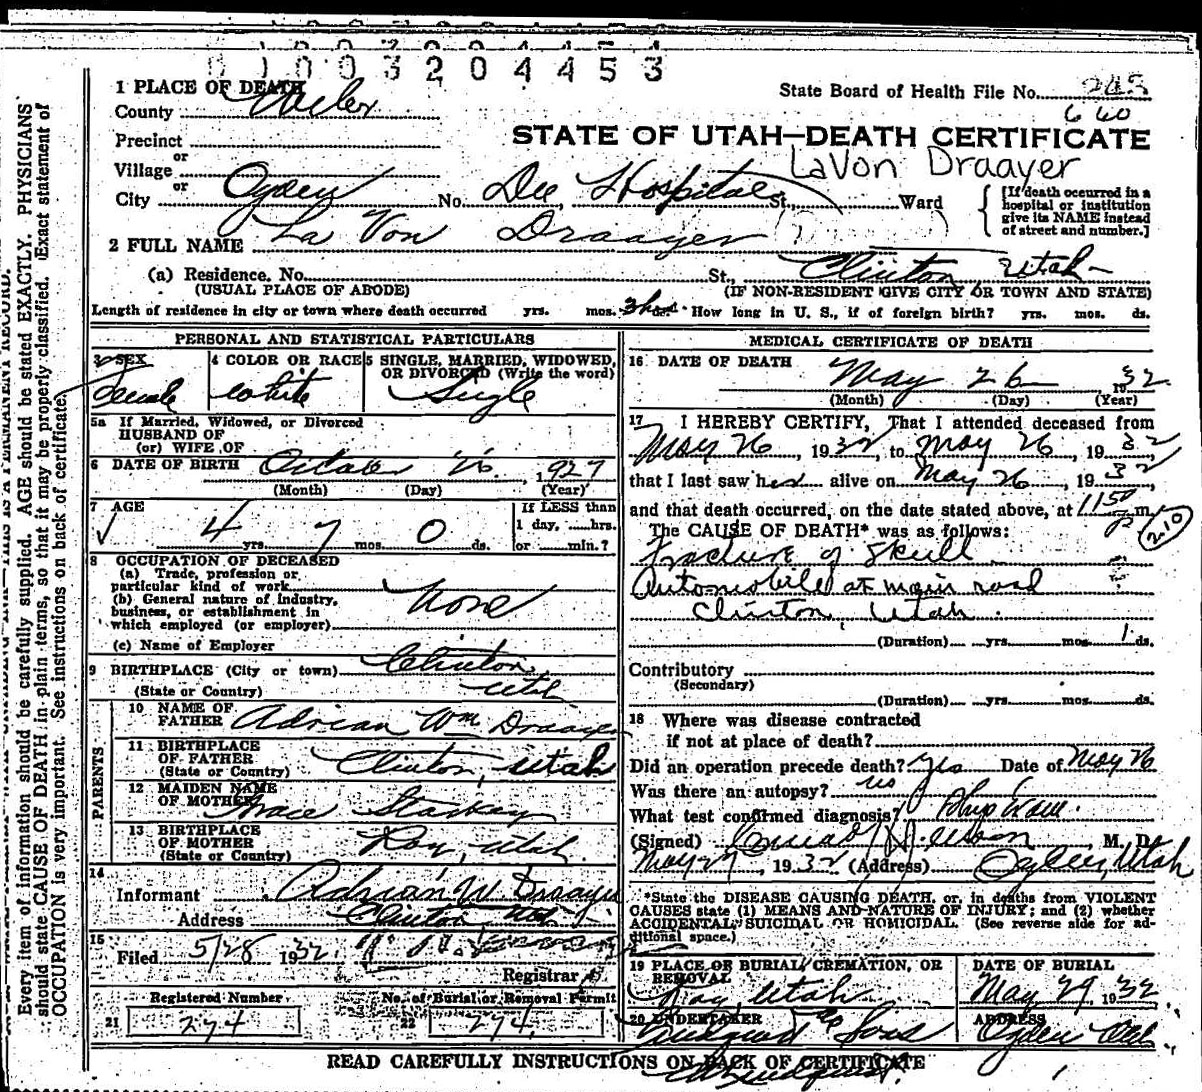 0 1 0 0 3 2 0 4 4 5 3
1 PLACE OF DEATH
County Weber
State Board of Health File No. 243
660
Precinct
STATE OF UTAH—DEATH CERTIFICATE
or
Village
LaVon Draayer
or
City Ogden No. Dee Hospital St., Ward
[If death occurred in a hospital or institution give its NAME instead of street and number.]
2 FULL NAME La Von Draayer
(a) Residence. No. St., Clinton Utah
(USUAL PLACE OF ABODE) (IF NON-RESIDENT GIVE CITY OR TOWN AND STATE)
Length of residence in city or town where death occurred yrs. mos. 3 hrs. How long in U. S., if of foreign birth? yrs. mos. ds.
PERSONAL AND STATISTICAL PARTICULARS
3 SEX Female
4 COLOR OR RACE White
5 SINGLE, MARRIED, WIDOWED, OR DIVORCED (Write the word) Single
5a If Married, Widowed, or Divorced
HUSBAND OF
(or) WIFE OF
6 DATE OF BIRTH October 26 1927
(Month) (Day) (Year)
7 AGE 4 yrs. 7 mos. 0 ds.
If LESS than
1 day, hrs.
or min.?
8 OCCUPATION OF DECEASED
(a) Trade, profession or
particular kind of work
(b) General nature of industry,
business, or establishment in
which employed (or employer) None
(c) Name of Employer
9 BIRTHPLACE (City or town) Clinton
(State or Country) Utah
PARENTS
10 NAME OF
FATHER Adrian Wm Draayer
11 BIRTHPLACE
OF FATHER Clinton, Utah
(State or Country)
12 MAIDEN NAME
OF MOTHER Grace Starkey
13 BIRTHPLACE
OF MOTHER Roy, Utah
(State or Country)
14
Informant Adrian W Draayer
Address Clinton Ut
15
Filed 5/28 1932
Registrar
Registered Number
21 274
No. of Burial or Removal Permit
22 274
MEDICAL CERTIFICATE OF DEATH
16 DATE OF DEATH May 26 1932
(Month) (Day) (Year)
17 I HEREBY CERTIFY, That I attended deceased from
May 26, 1932, to May 26, 1932
that I last saw her alive on May 26, 1932
and that death occurred, on the date stated above, at 1150 p m.
210
The CAUSE OF DEATH* was as follows:
Fracture of Skull
Automobile at main road
Clinton, Utah.
(Duration) yrs. mos. 1 ds.
Contributory
(Secondary)
(Duration) yrs. mos. ds.
18 Where was disease contracted
if not at place of death?
Did an operation precede death? Yes Date of May 26
Was there an autopsy? no
What test confirmed diagnosis? Phys Exam.
(Signed) M. D.
May 27 1932 (Address) Ogden, Utah
*State the DISEASE CAUSING DEATH, or, in deaths from VIOLENT
CAUSES state (1) MEANS AND NATURE OF INJURY; and (2) whether
ACCIDENTAL, SUICIDAL OR HOMICIDAL. (See reverse side for ad-
ditional space.)
19 PLACE OF BURIAL, CREMATION, OR
REMOVAL
Roy, Utah
DATE OF BURIAL
May 29, 1932
20 UNDERTAKER
Lindquist & Sons
ADDRESS
Ogden Utah
READ CAREFULLY INSTRUCTIONS ON BACK OF CERTIFICATE
Every item of information should be carefully supplied. AGE should be stated EXACTLY. PHYSICIANS
should state CAUSE OF DEATH in plain terms, so that it may be properly classified. Exact statement of
OCCUPATION is very important. See instructions on back of certificate.